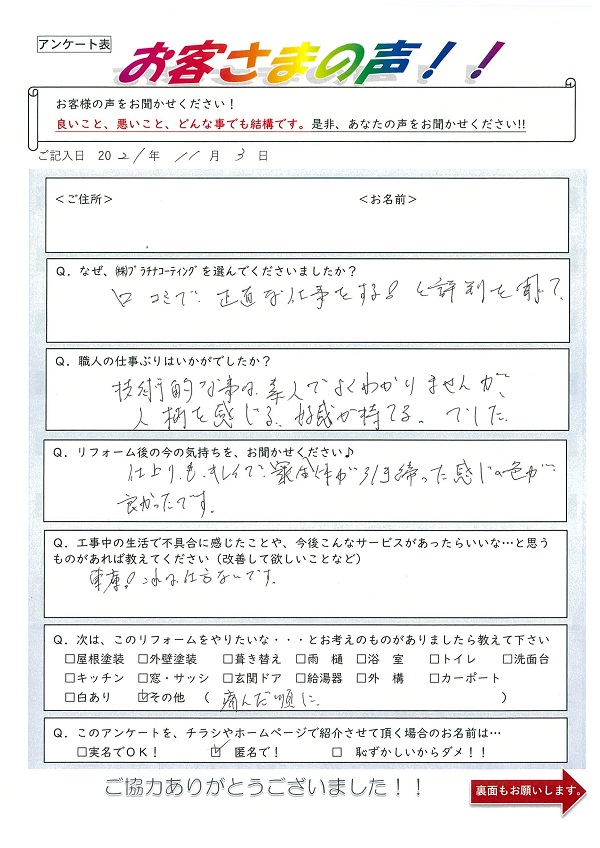 アンケート表
お客さまの声！！
お客様の声をお聞かせください！
良いこと、悪いこと、どんな事でも結構です。是非、あなたの声をお聞かせください!!
ご記入日 2021年 11月 3日
＜ご住所＞ ＜お名前＞
Q．なぜ、㈱ﾌﾟﾗﾁﾅｺｰﾃｨﾝｸﾞを選んでくださいましたか？
口コミで、正直な仕事をする！と評判を聞いて。
Q．職人の仕事ぶりはいかがでしたか？
技術的な事は、素人でよくわかりませんが、
人柄を感じる、好感が持てる。でした
Q．リフォーム後の今の気持ちを、お聞かせください♪
仕上りも、キレイで、家全体が引き締った感じの色が、
良かったです。
Q．工事中の生活で不具合に感じたことや、今後こんなサービスがあったらいいな…と思う
ものがあれば教えてください（改善して欲しいことなど）
車庫！これは仕方ないです。
Q．次は、このリフォームをやりたいな・・・とお考えのものがありましたら教えて下さい
□屋根塗装 □外壁塗装 □葺き替え □雨 樋 □浴 室 □トイレ □洗面台
□キッチン □窓・サッシ □玄関ドア □給湯器 □外 構 □カーポート
□白あり ☑その他 （ 痛んだ順に. ）
Q．このアンケートを、チラシやホームページで紹介させて頂く場合のお名前は…
□実名でOK！ ☑ 匿名で！ □ 恥ずかしいからダメ！！
ご協力ありがとうございました！！
裏面もお願いします。